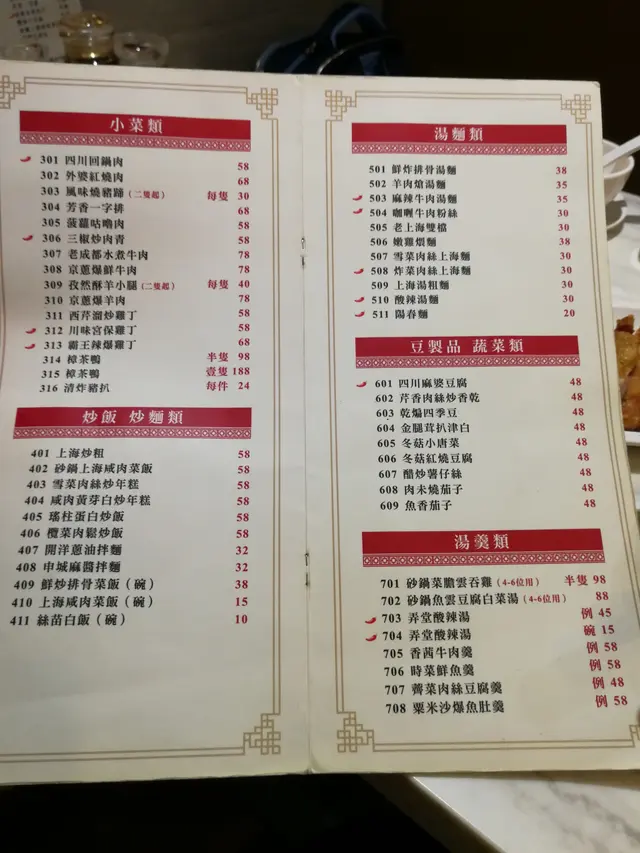 小菜類
301 四川回鍋肉 58
302 外婆紅燒肉 68
303 風味燒豬蹄（二隻起） 每隻 30
304 芳香一字排 68
305 菠蘿咕嚕肉 58
306 三椒炒肉青 58
307 老成都水煮牛肉 78
308 京蔥爆鮮牛肉 78
309 孜然酥羊小腿（二隻起） 每隻 40
310 京蔥爆羊肉 78
311 西芹溜炒雞丁 58
312 川味宮保雞丁 58
313 霸王辣爆雞丁 68
314 樟茶鴨 半隻 98
315 樟茶鴨 壹隻 188
316 清炸豬扒 每件 24
炒飯 炒麵類
401 上海炒粗 58
402 砂鍋上海咸肉菜飯 58
403 雪菜肉絲炒年糕 58
404 咸肉黃芽白炒年糕 58
405 瑤柱蛋白炒飯 58
406 欖菜肉鬆炒飯 58
407 開洋蔥油拌麵 32
408 申城麻醬拌麵 32
409 鮮炒排骨菜飯（碗） 38
410 上海咸肉菜飯（碗） 15
411 絲苗白飯（碗） 10
湯麵類
501 鮮炸排骨湯麵 38
502 羊肉熗湯麵 35
503 麻辣牛肉湯麵 35
504 咖喱牛肉粉絲 30
505 老上海雙檔 30
506 嫩雞煨麵 38
507 雪菜肉絲上海麵 30
508 炸菜肉絲上海麵 30
509 上海湯粗麵 30
510 酸辣湯麵 30
511 陽春麵 20
豆製品 蔬菜類
601 四川麻婆豆腐 48
602 芹香肉絲炒香乾 48
603 乾煸四季豆 48
604 金腿茸扒津白 48
605 冬菇小唐菜 48
606 冬菇紅燒豆腐 48
607 醋炒薯仔絲 48
608 肉末燒茄子 48
609 魚香茄子 48
湯羹類
701 砂鍋菜膽雲吞雞（4-6位用） 半隻 98
702 砂鍋魚雲豆腐白菜湯（4-6位用） 88
703 弄堂酸辣湯 例 45
704 弄堂酸辣湯 碗 15
705 香茜牛肉羹 例 58
706 時菜鮮魚羹 例 58
707 薺菜肉絲豆腐羹 例 48
708 粟米沙爆魚肚羹 例 58